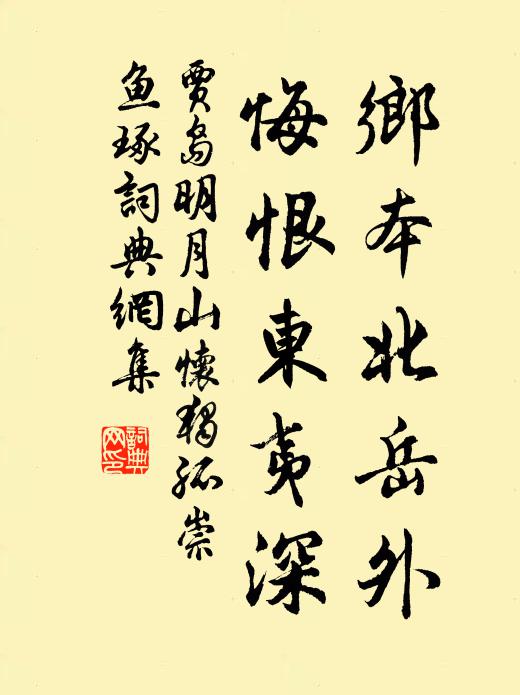 鄉本北岳外
悔恨東夷深
賈島明月山懷獨孤崇
魚琢詞典網集
詞典
網印